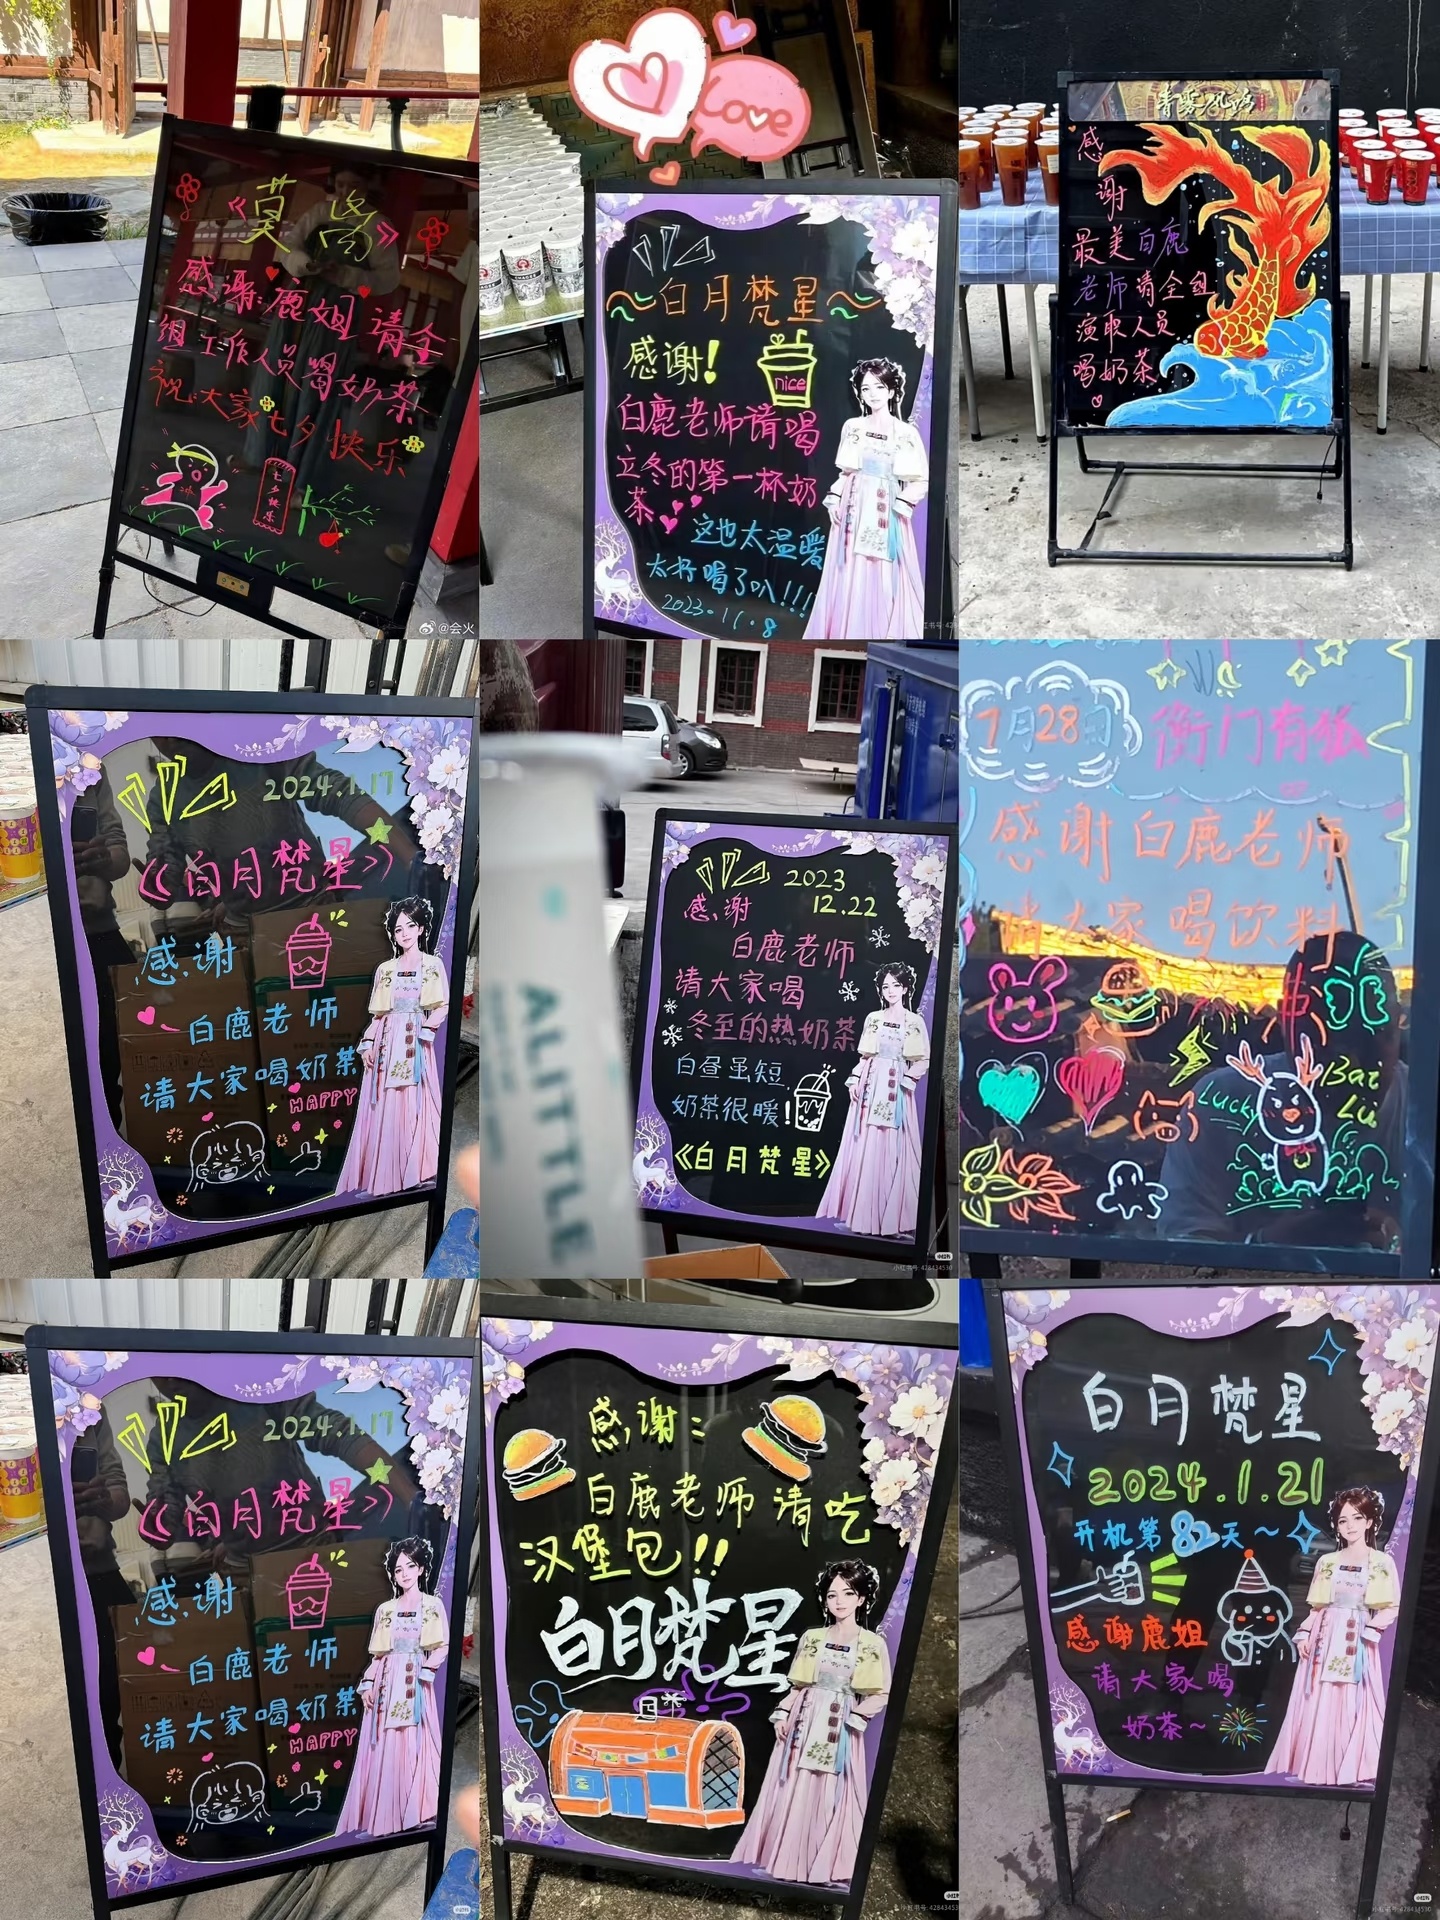 《莫离》
感谢:鹿姐请全
组工作人员喝奶茶
祝大家七夕快乐
七夕快乐
@会火
Love
~白月梵星~
感谢!
nice
白鹿老师请喝
立冬的第一杯奶
茶
这也太温暖
太好喝了叭!!!
2023.11.8
CHAGEE
感
谢
最美白鹿
老师请全组
演职人员
喝奶茶
2024.1.17
《白月梵星》
感谢
白鹿老师
请大家喝奶茶
HAPPY
ALITTLE
2023
12.22
感谢
白鹿老师
请大家喝
冬至的热奶茶
白昼虽短
奶茶很暖!
《白月梵星》
小红书
小红书号: 428434530
7月28日
衡门有狐
感谢白鹿老师
请大家喝饮料
Lucky
Bai
Lu
2024.1.17
《白月梵星》
感谢
白鹿老师
请大家喝奶茶
HAPPY
小红书
感谢:
白鹿老师请吃
汉堡包!!
白月梵星
小红书
白月梵星
2024.1.21
开机第82天~
感谢鹿姐
请大家喝
奶茶~
小红书
小红书号: 428434530